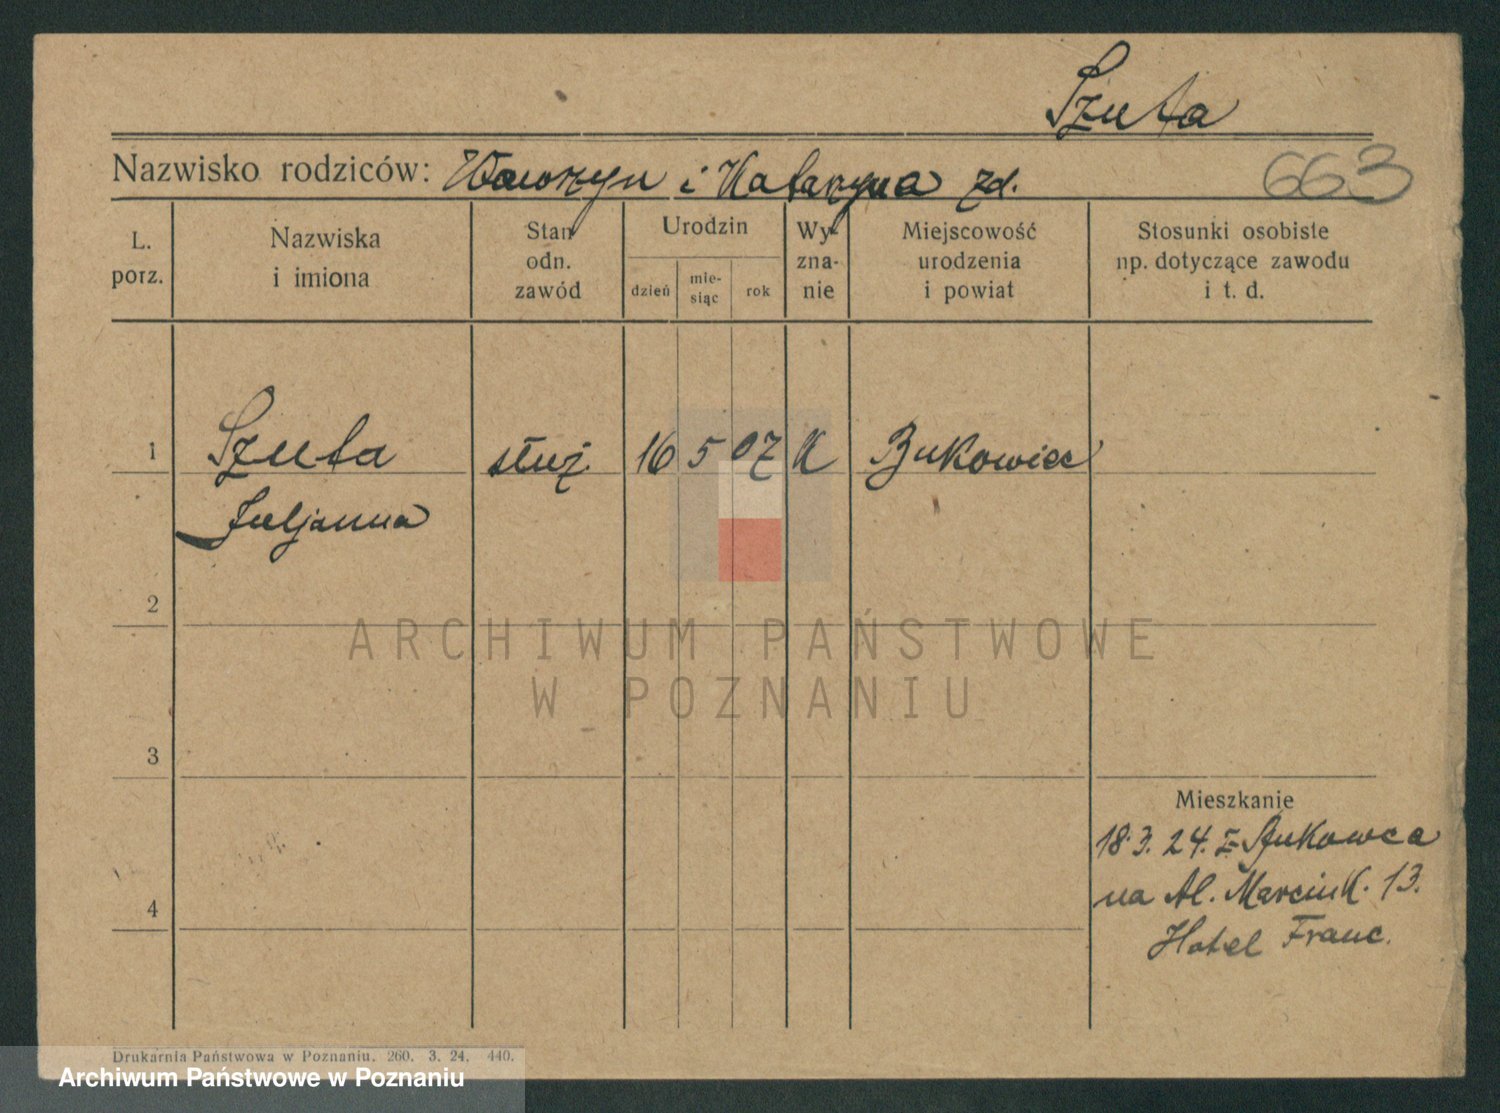 Szuta
Nazwisko rodziców: Wawrzyn i Katarzyna zd.
663
L. porz.
Nazwiska i imiona
Stan odn. zawód
Urodzin
dzień
mie-
siąc
rok
Wy-
zna-
nie
Miejscowość
urodzenia
i powiat
Stosunki osobiste
np. dotyczące zawodu
i t. d.
1 Szuta służ. 16 5 07 K Bukowiec
Juljanna
2
ARCHIWUM PAŃSTWOWE
W POZNANIU
3
Mieszkanie
18.3.24. z Bukowca
4
na Al. Marcink. 13.
Hotel Franc.
Drukarnia Państwowa w Poznaniu. 260. 3. 24. 440.
Archiwum Państwowe w Poznaniu